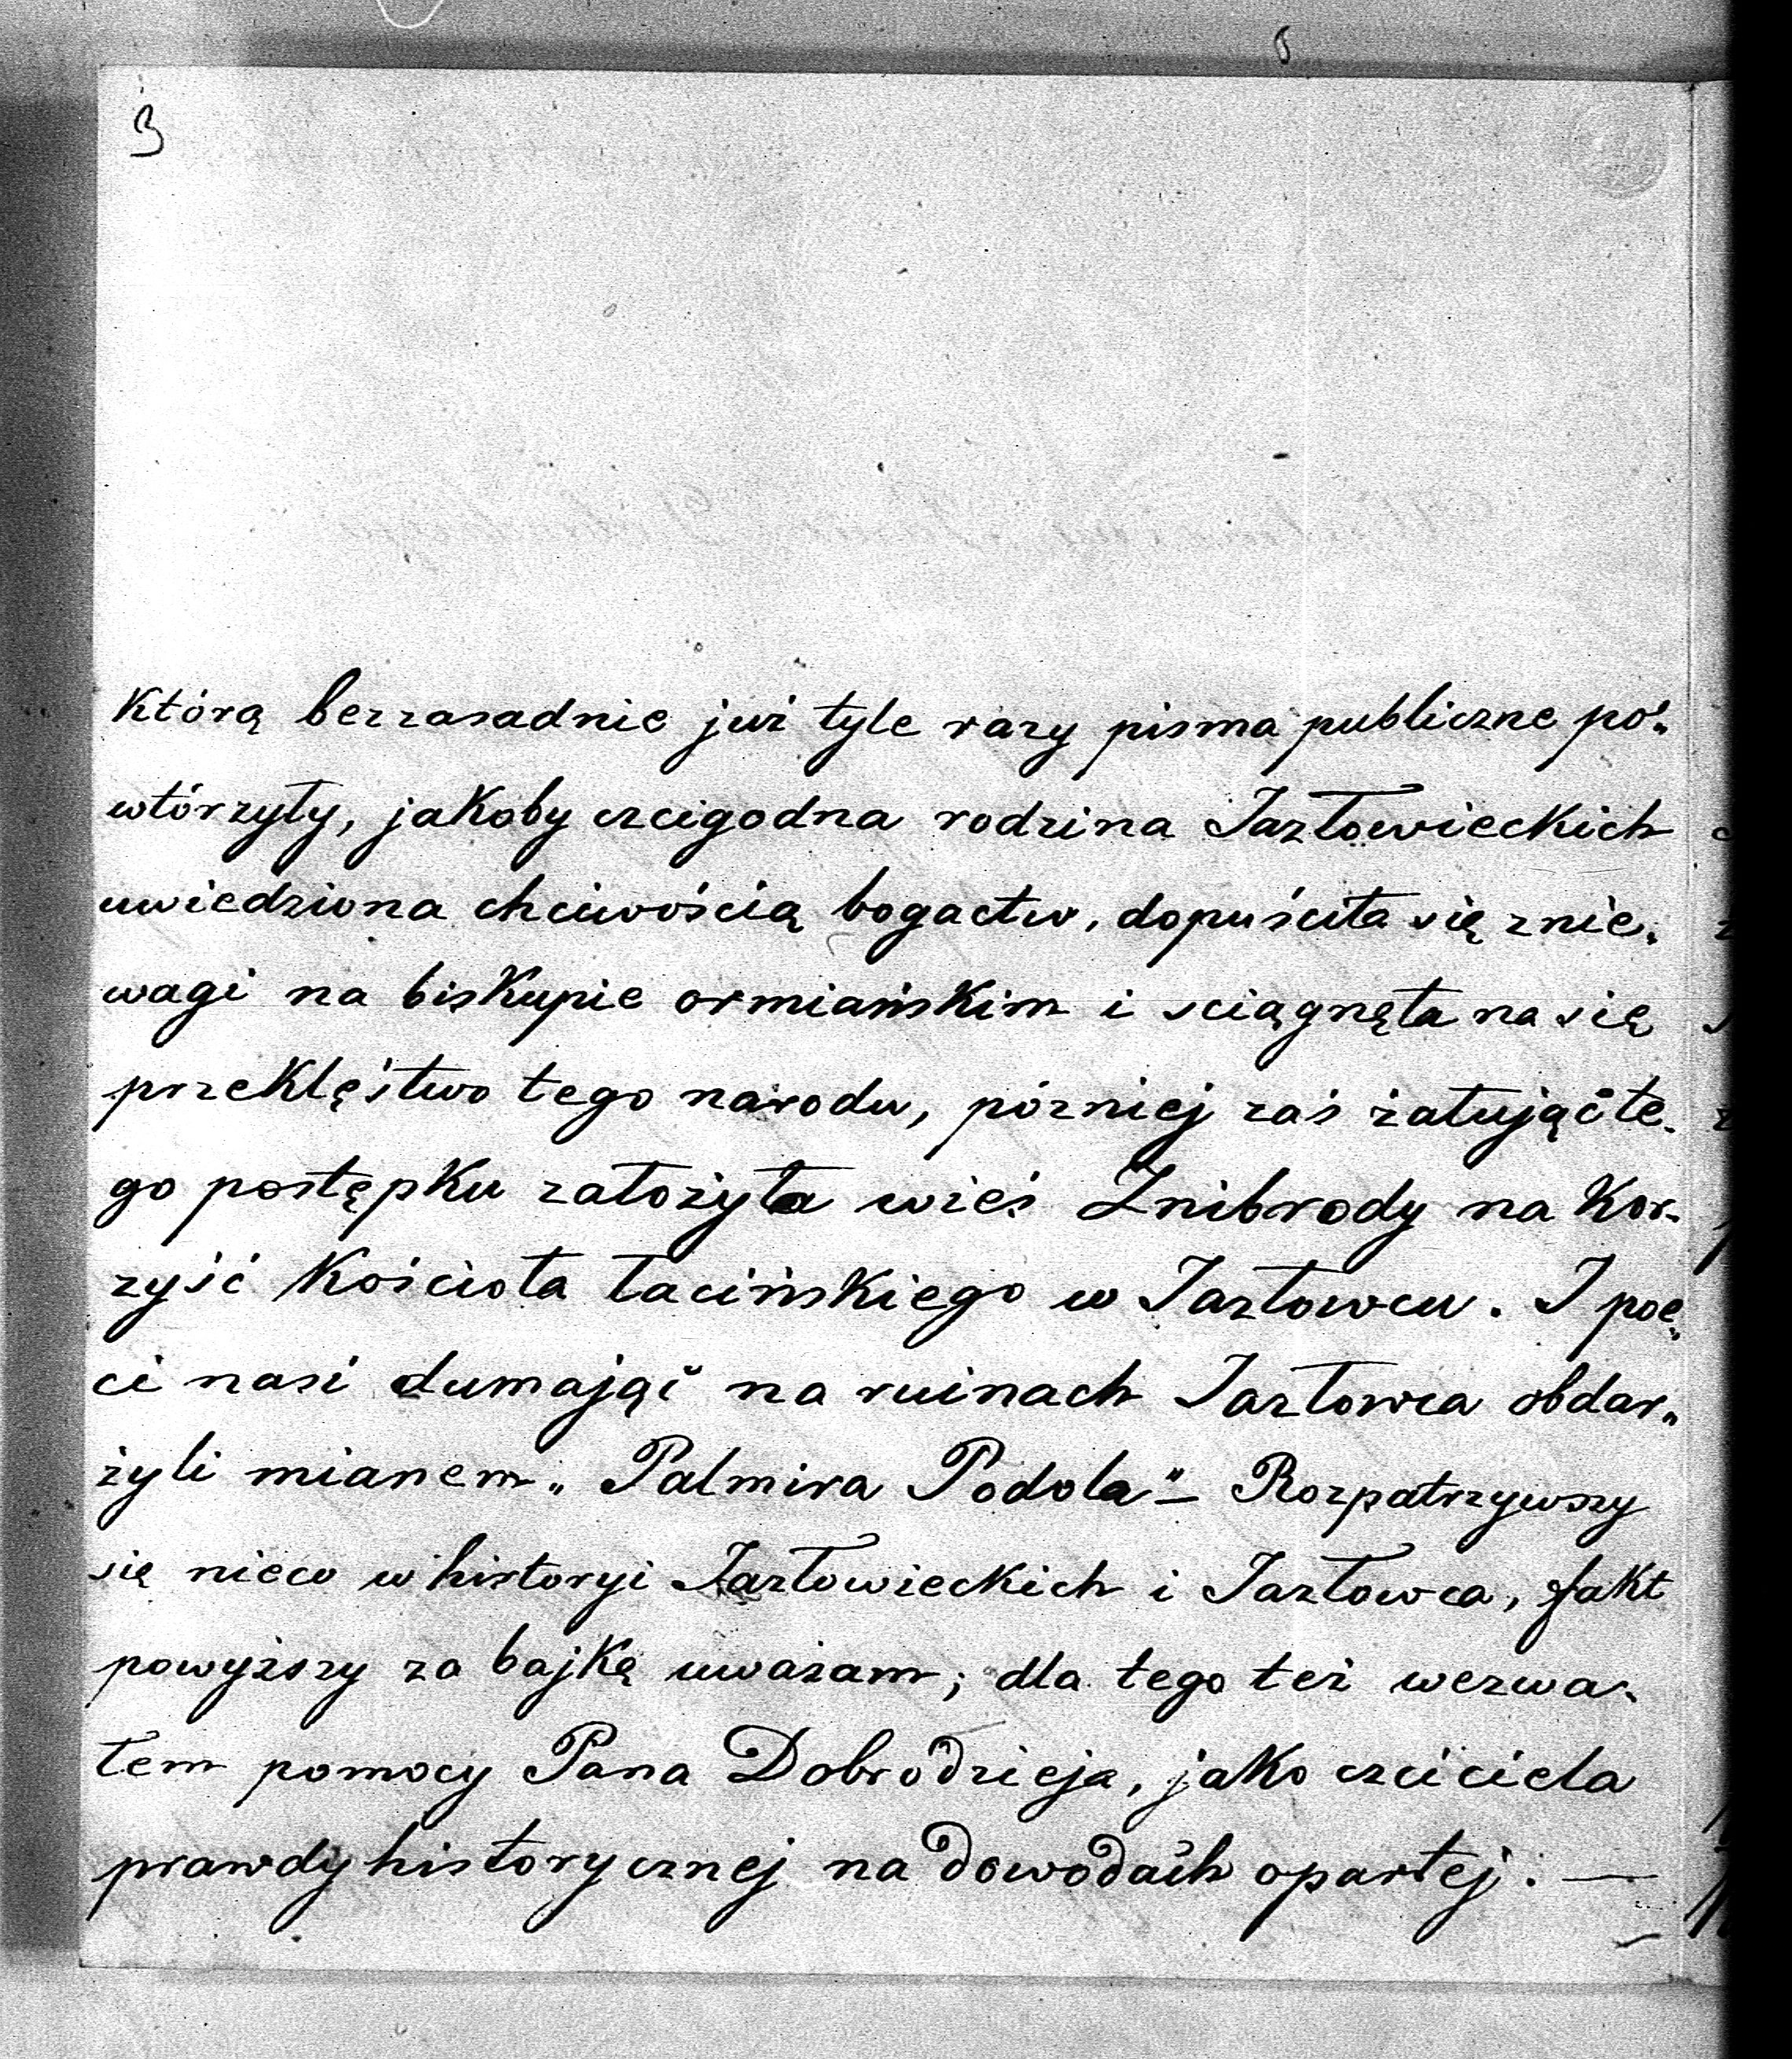 3
którą bezzasadnie już tyle razy pisma publiczne po„
wtórzyły, jakoby czcigodna rodzina Jazłowieckich
uwiedziona chciwością bogactw, dopuściła się znie„
wagi na biskupie ormiańskim i sciągnęła na się
przeklęstwo tego narodu, pózniej zaś żałując te„
go postępku założyła wieś Znibrody na kor„
zyść kościoła łacińskiego w Jazłowcu. I poe„
ci nasi dumając na ruinach Jazłowca obdar„
żyli mianem „Palmira Podola" – Rozpatrzywszy
się nieco w historyi Jazłowieckich i Jazłowca, fakt
powyższy za bajkę uważam; dla tego też wezwa„
łem pomocy Pana Dobrodzieja, jako czciciela
prawdy historycznej na dowodach opartej. —